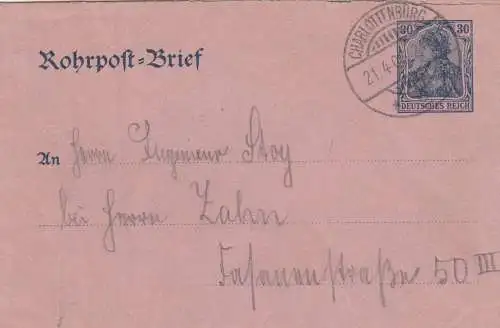 CHARLOTTENBURG
21.4.0
30 30
DEUTSCHES REICH
Rohrpost-Brief
An Herrn Ingenieur Stoy
bei Herrn Zahn
Fasanenstraße 50 III